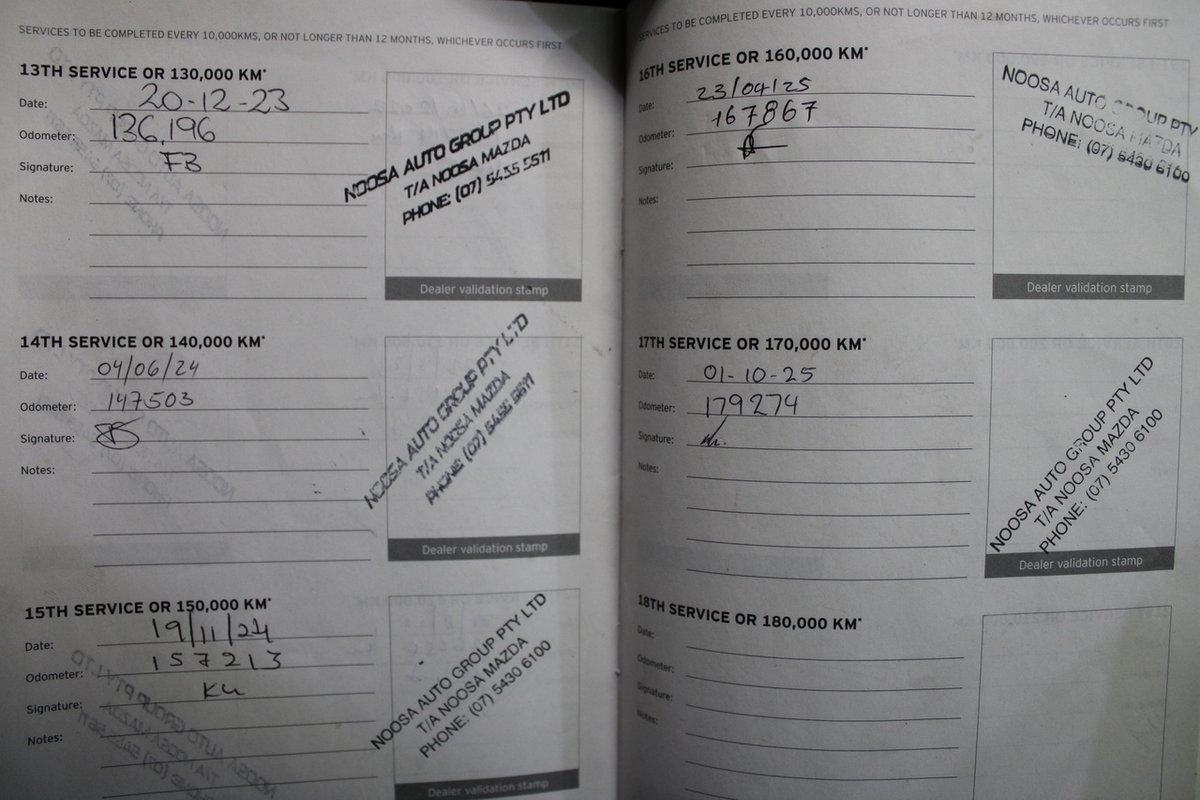 SERVICES TO BE COMPLETED EVERY 10,000KMS, OR NOT LONGER THAN 12 MONTHS, WHICHEVER OCCURS FIRST
13TH SERVICE OR 130,000 KM*
Date: 20-12-23
Odometer: 136,196
Signature: FB
Notes:
NOOSA AUTO GROUP PTY LTD
T/A NOOSA MAZDA
PHONE: (07) 5455 5511
Dealer validation stamp
14TH SERVICE OR 140,000 KM*
Date: 04/06/24
Odometer: 147503
Signature:
Notes:
NOOSA AUTO GROUP PTY LTD
T/A NOOSA MAZDA
PHONE: (07) 5455 5511
Dealer validation stamp
15TH SERVICE OR 150,000 KM*
Date: 19/11/24
Odometer: 157213
Signature: KU
Notes:
NOOSA AUTO GROUP PTY LTD
T/A NOOSA MAZDA
PHONE: (07) 5430 6100
Dealer validation stamp
SERVICES TO BE COMPLETED EVERY 10,000KMS, OR NOT LONGER THAN 12 MONTHS, WHICHEVER OCCURS FIRST
16TH SERVICE OR 160,000 KM*
Date: 23/04/25
Odometer: 167867
Signature:
Notes:
NOOSA AUTO GROUP PTY
T/A NOOSA MAZDA
PHONE: (07) 5430 6100
Dealer validation stamp
17TH SERVICE OR 170,000 KM*
Date: 01-10-25
Odometer: 179274
Signature:
Notes:
NOOSA AUTO GROUP PTY LTD
T/A NOOSA MAZDA
PHONE: (07) 5430 6100
Dealer validation stamp
18TH SERVICE OR 180,000 KM*
Date:
Odometer:
Signature:
Notes: